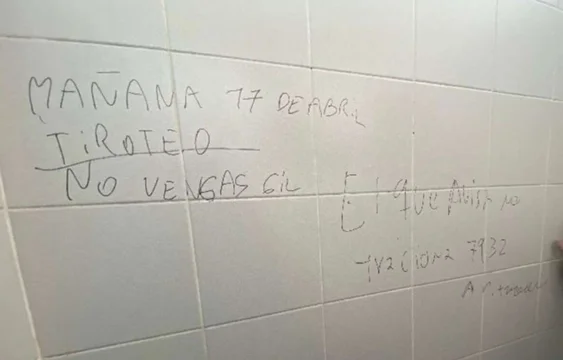 MAÑANA 17 DE ABRIL
TiROTEO
NO VENGAS GIL
El que Avisa no
traiciona 7932